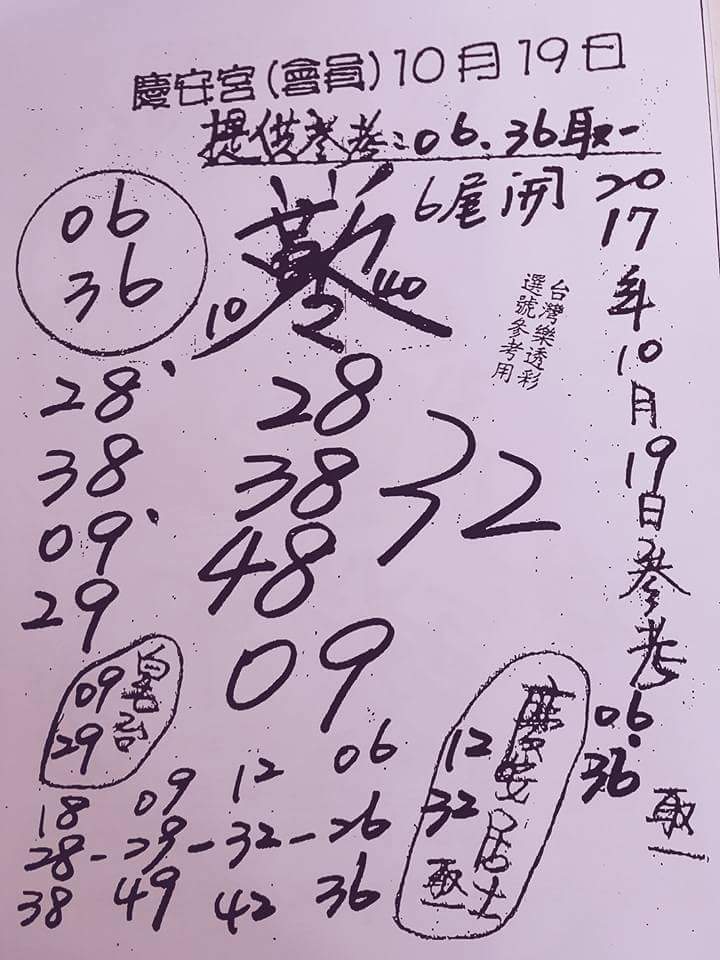 慶安宮(會員)10月19日
提供參考:06.36取一
6尾開
06
36
10
40
2017年10月19日參考
06.
36
取一
台灣樂透彩
選號參考用
28、
38
09、
29
28
38
48
32
09
09
29
12
32
取
18 09 12 06
28-29-32-26
38 49 42 36